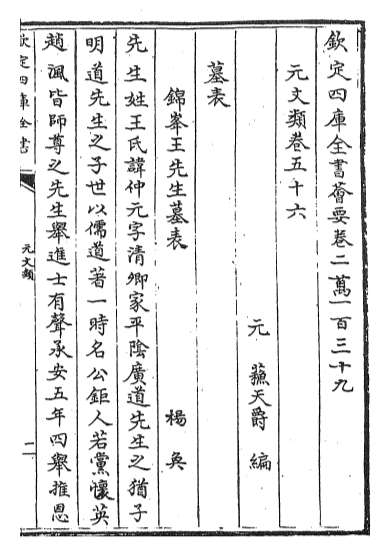 欽定四庫全書薈要卷二萬一百三十九
元文類卷五十六
元 蘓天爵 編
墓表
錦峯王先生墓表 楊奐
先生姓王氏諱仲元字清卿家平陰廣道先生之猶子
明道先生之子世以儒道著一時名公鉅人若黨懷英
趙渢皆師尊之先生舉進士有聲承安五年四舉推恩
欽定四庫全書
元文類